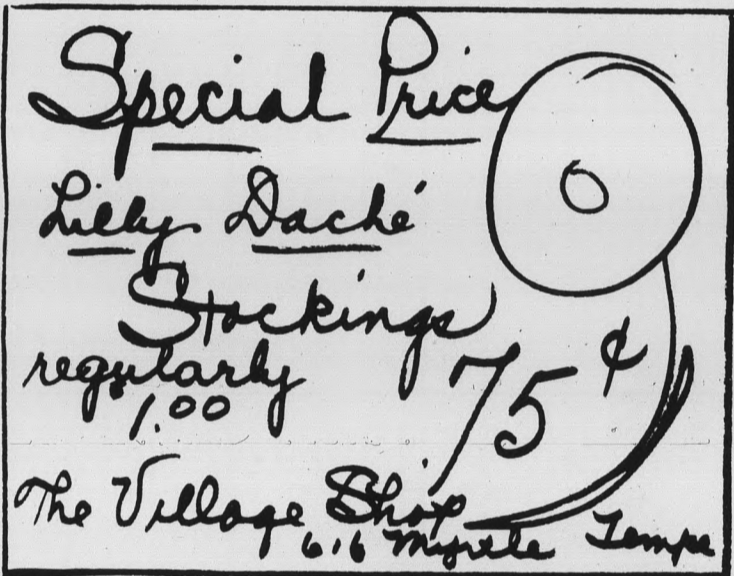 Special Price
Lilly Daché
Stockings
regularly
$1.00
75¢
The Village Shop
616 Myrtle Tempe